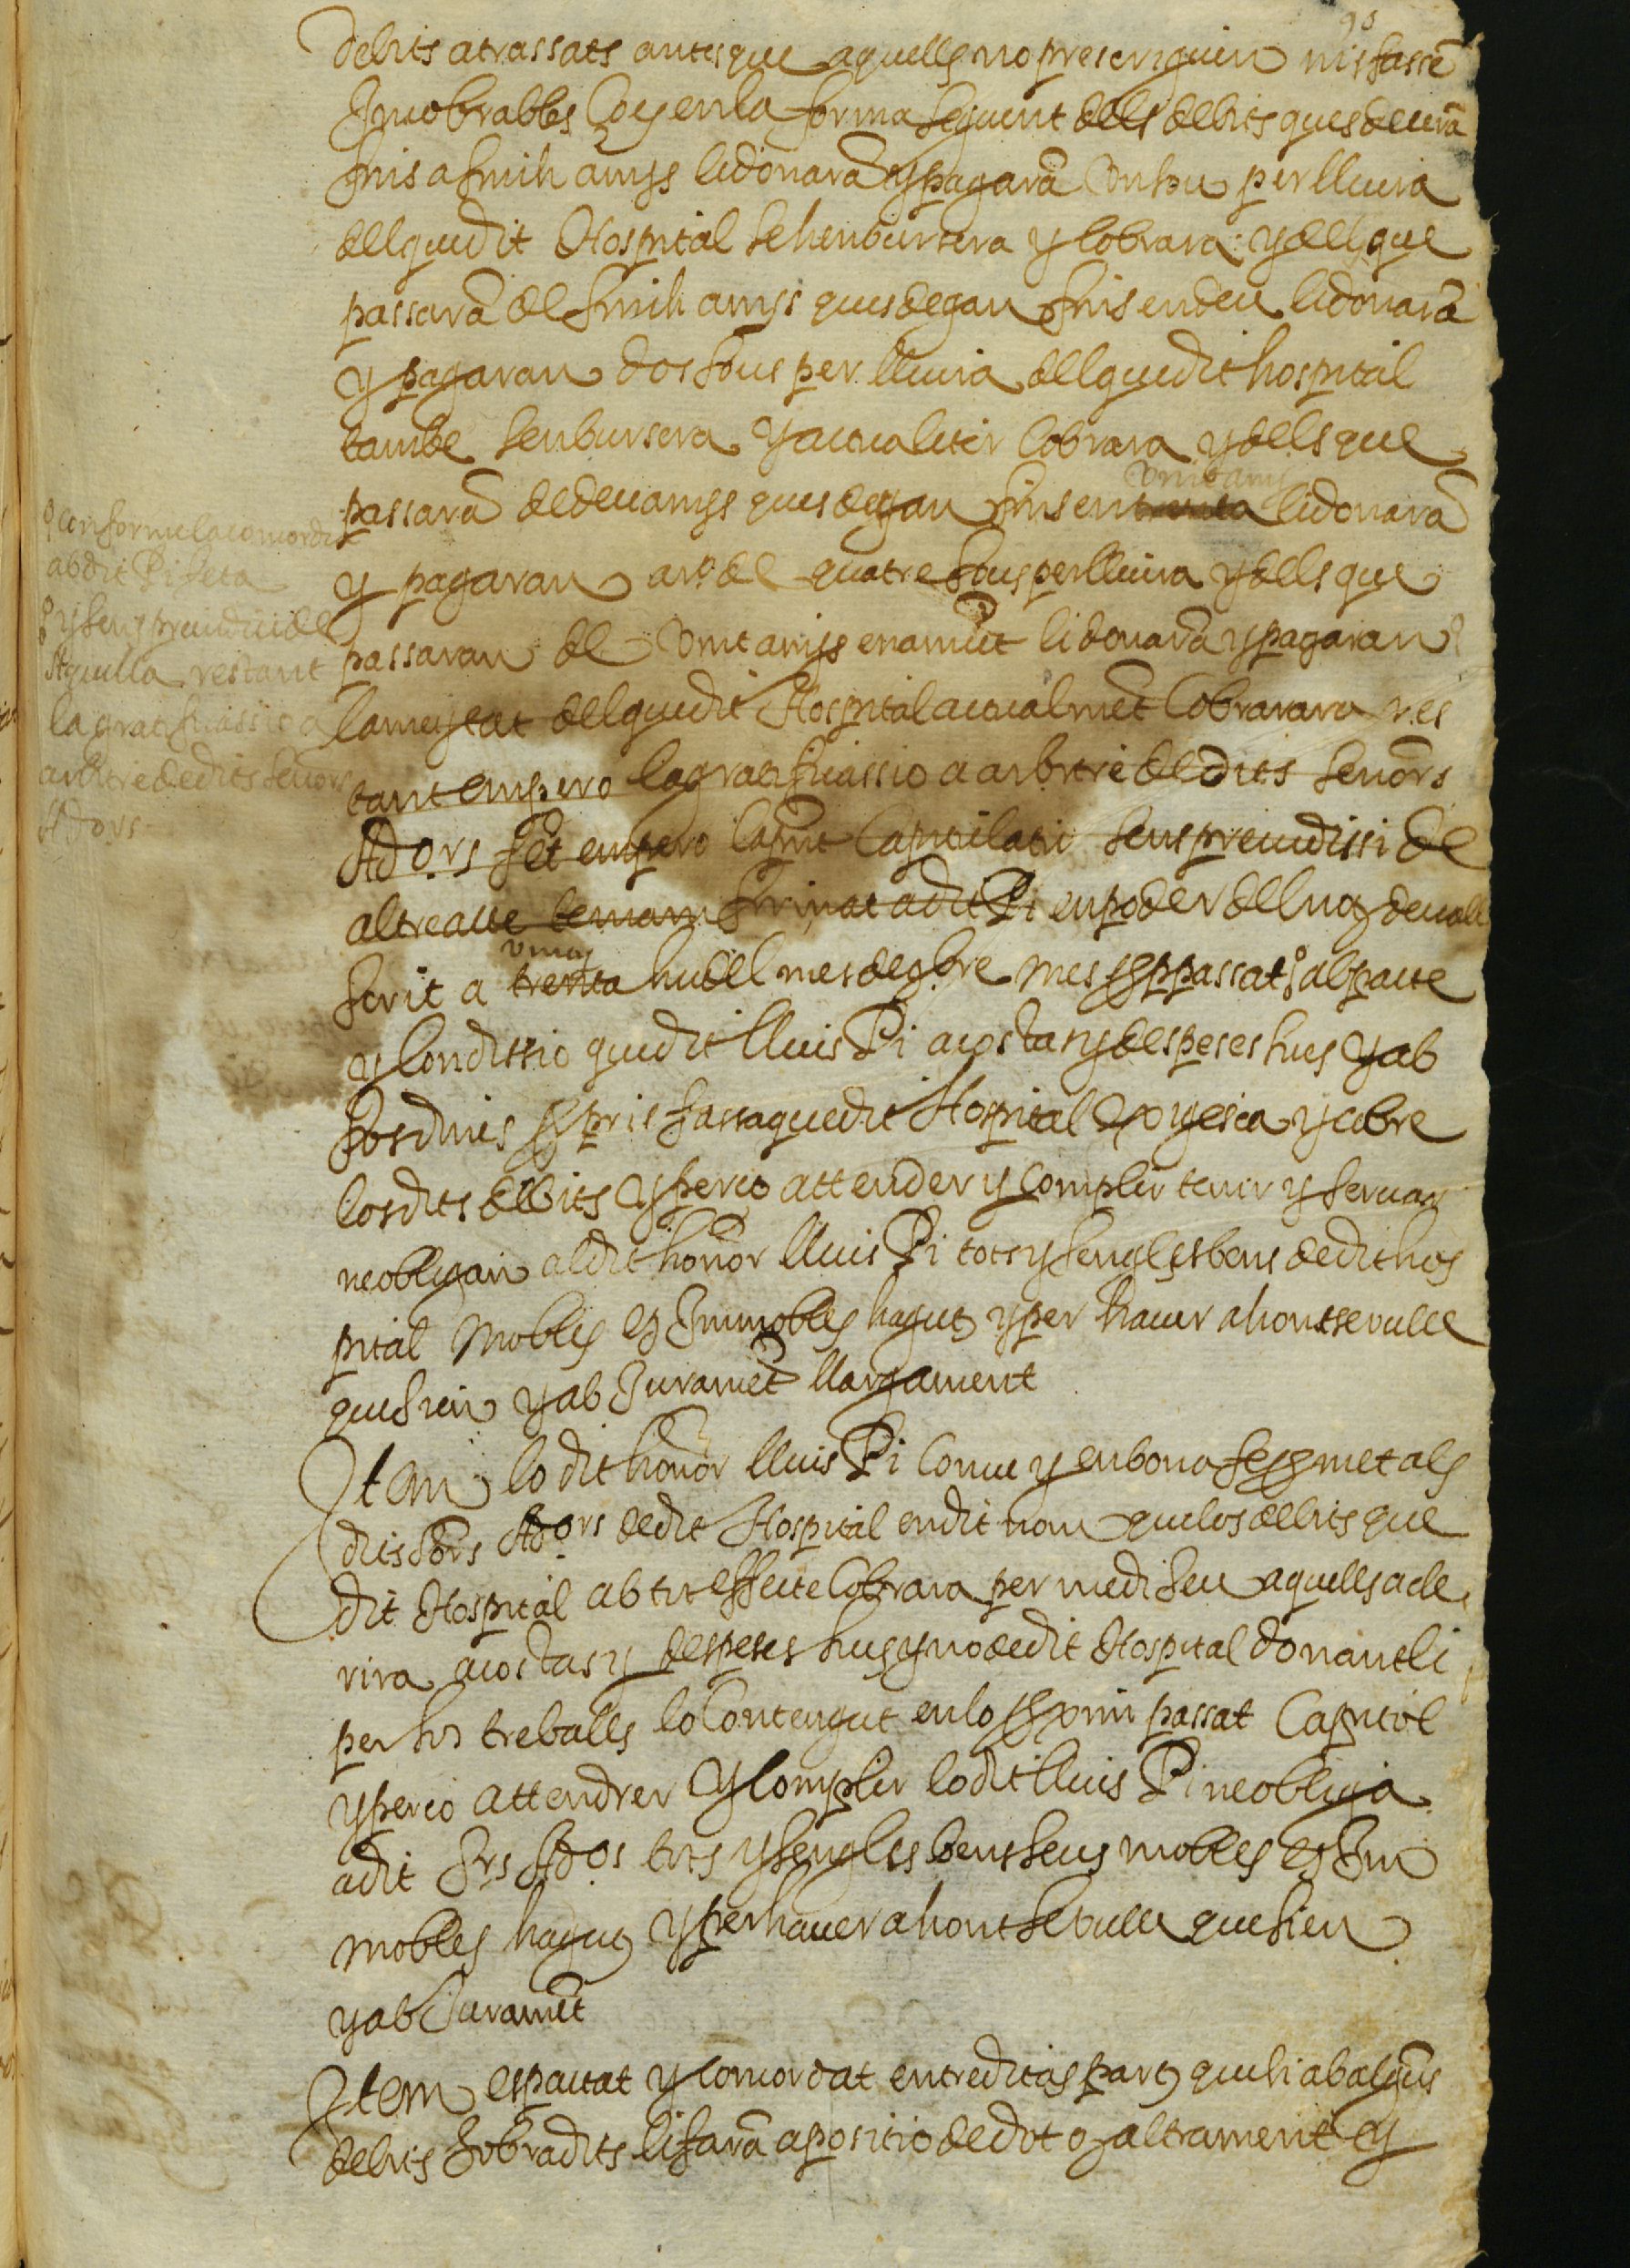 debits atrassats antes que aquells no prescriguin nis fassē
Incobrables Ço es en la forma seguent dells debits ques deurā
fins a sinch anys li donarā y pagarā un sou per lliura
del que dit Hospital se henbursera y cobrara: y dells que
passarā de sinch anys ques degan fins en deu li donarā
y pagaran dos sous per lliura del que dit hospital
tambe senbursera y actualiter cobrara y dells que
vint anys
passarā de deu anys ques degan fins en trenta li donarā
y pagaran de quatre sous per lliura y dells que
passaran de vint anys en amūt li donarā y pagaran
la meytat del que dit Hospital actualmēt cobrarara res
tant empero la gratificassio a arbitre de dits senōrs
Ad.ors fet empero capitulatio sens prejudissi de
altre acte firmat a dit Pi en poder del not devall
vint
scrit a trenta hu del mes de 9bre mes prop passat ab pacte
y condissio que dit lluis Pi a costas y despeses sues y ab
fassa que dit Hospital exigesca y cobre
los dits debits y per ço attender y complir tenir y servar
ne obligan al dit honōr lluis Pi tots y sengles bens de dit hos
pital mobles et Immobles haguts y per haver ahont se vulle
que sien y ab Juramēt llargament
Item lo dit honōr lluis Pi conve y en bona fe promet als
dits sōrs Ad.ors de dit Hospital en dit nom que los debits que
dit Hospital ab tit effecte cobrara per medi seu aquells ade
rira a costas y despeses sues y no de dit Hospital donantli
per sos treballs lo contengut en lo prop passat Capitol
y per ço attendrer y complir lo dit lluis Pi ne obliga
a dit Srs Ad.os tots y sengles bens seus mobles et Im
mobles haguts y per haver ahont se vulle que sien
y ab Juramēt
Item es pactat y concordat entre ditas parts que si ab alguns
debits sobradits li farā apositio de dot o altrament y
conforme la concordia
ab dit Pi feta
y sens prejudici de
Aquella restant
la gratificassio a
arbitre de dits senors
Adors